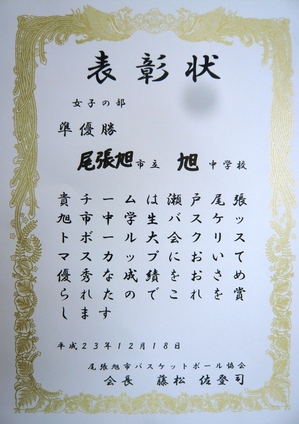 表彰状
女子の部
準優勝
尾張旭市立 旭 中学校
貴チームは瀬戸尾張
旭市中学生バスケッ
トボール大会クリス
マスカップにおいて
優秀な成績をおさめ
られたのでこれを賞
します
平成23年12月18日
尾張旭市バスケットボール協会
会長 藤松 佐登司